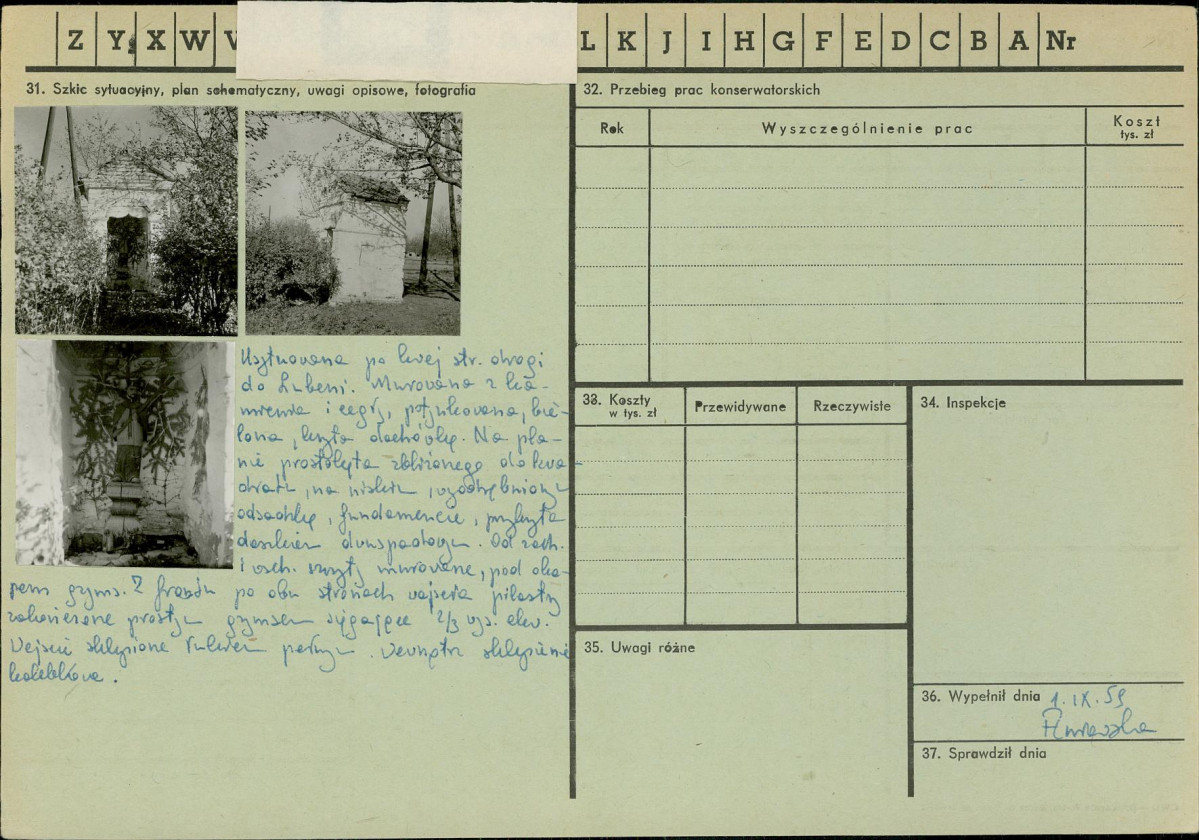 Z Y X W V
L K J I H G F E D C B A Nr
31. Szkic sytuacyjny, plan schematyczny, uwagi opisowe, fotografia
Usytuowana po lewej str. drogi
do Lubeni. Murowana z ka-
mienia i cegły, potynkowana, bie-
lona, kryta dachówką. Na pla-
nie prostokąta zbliżonego do kwa-
dratu, na niskim, wyodrębnionym
odsadzką, fundamencie, przykryta
daszkiem dwuspadowym. Od zach.
i wsch. szczyty murowane, pod oka-
pem gzyms. Z frontu po obu stronach wejścia pilastry
zakończone prostym gzymsem sięgające 2/3 wys. elew.
Wejście sklepione łukiem pełnym. Wewnątrz sklepienie
kolebkowe.
32. Przebieg prac konserwatorskich
Rok
Wyszczególnienie prac
Koszt
tys. zł
33. Koszty
w tys. zł
Przewidywane
Rzeczywiste
34. Inspekcje
35. Uwagi różne
36. Wypełnił dnia 1.IX.59
37. Sprawdził dnia